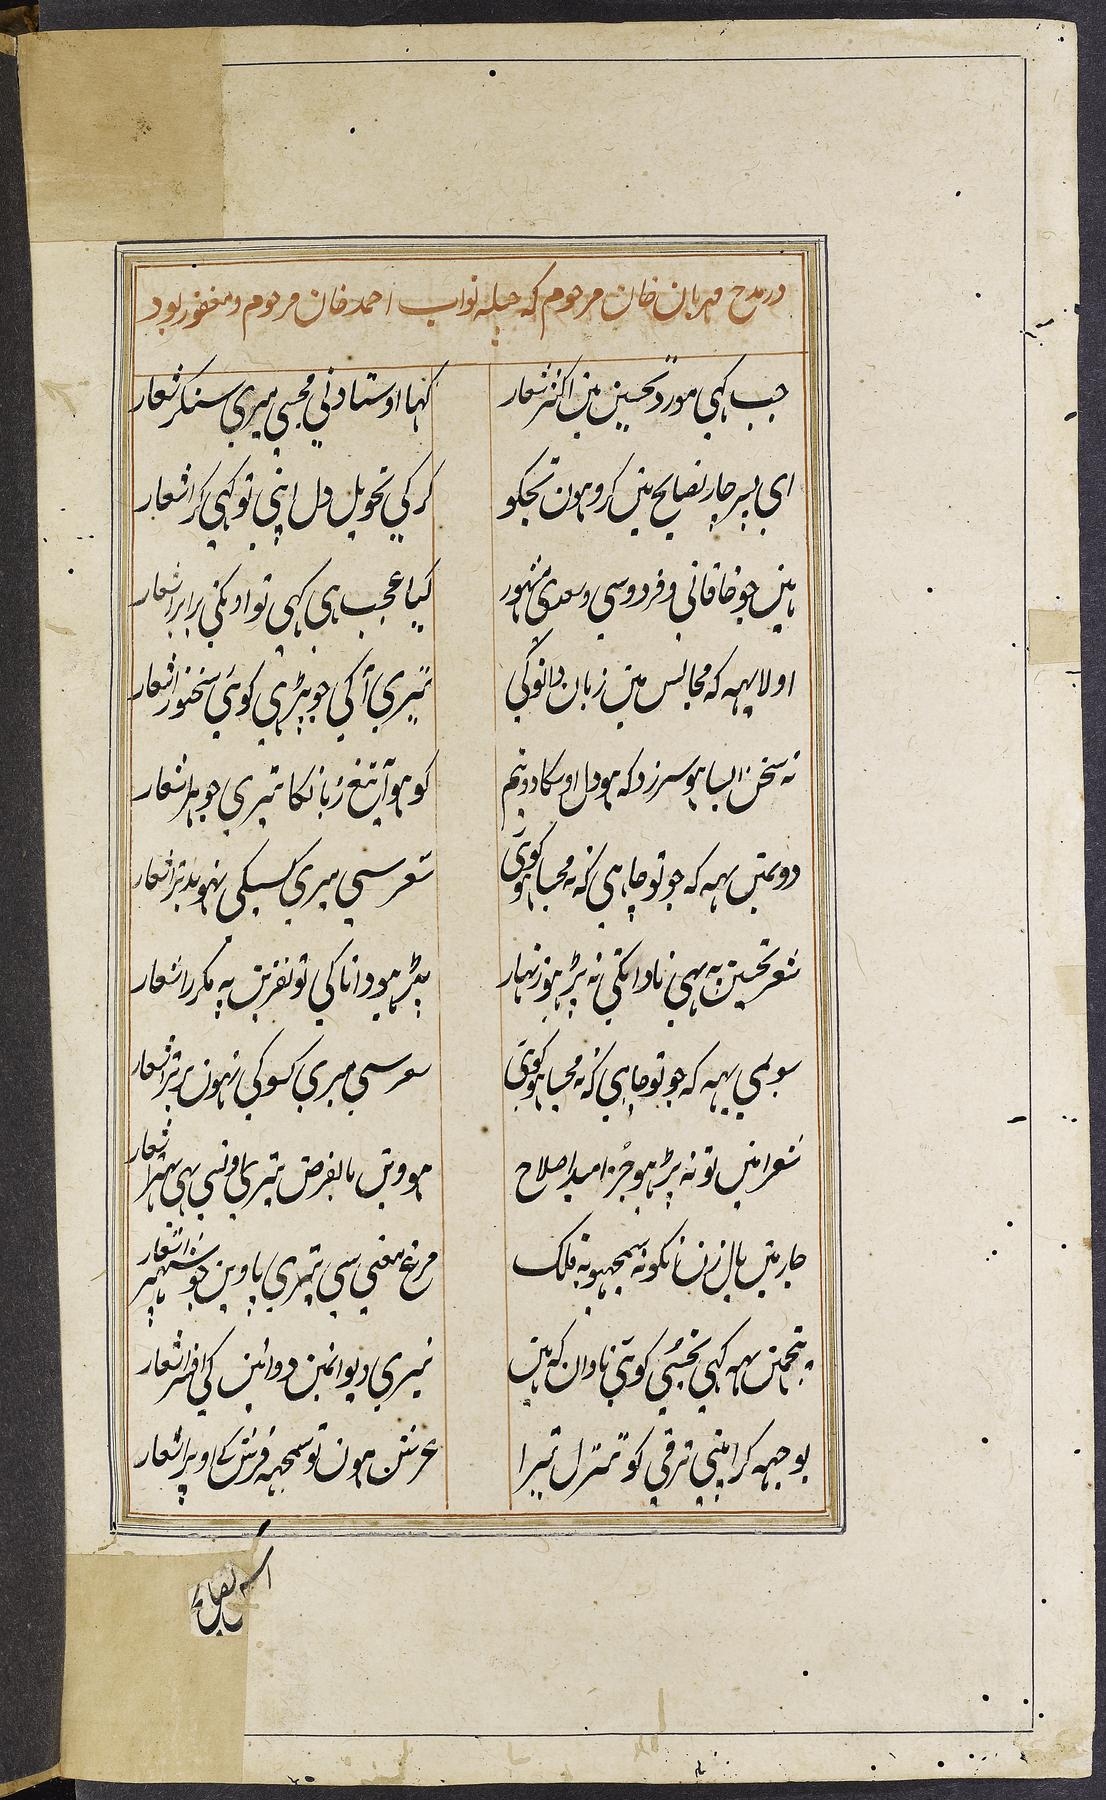 در مدح مهربان خان مرحوم که چیله نواب احمد خان مرحوم و مغفور بود
جب کہی مورد تحسین مین اکثر اشعار
کہا اوستاد نی مجہی میری سنکر اشعار
ای پسر چار نصایح مین کروہون تجکو
کر کی تحویل دل اپنی تو کہی کر اشعار
ہین جو خاقانی و فردوسی و سعدی مشہور
کیا عجب ہی کہی تو اونکی برابر اشعار
اولا یہہ کہ مجالس مین زبان دانونکی
تیری آکی جو پڑہی کوئی سخنور اشعار
نہ سخن ایسا ہو سرزد کہ ہو دل اوسکا دونیم
گو ہو آتیغ زبانکا تیری جوہر اشعار
دویمین یہہ کہ جو تو چاہی کہ نہ محجبا ہو کوئی
شعر سی میری کسیکی نہو بدتر اشعار
شعر تحسین پہ بہی نادانکی نہ پڑہیو زنہار
پڑہیو دانا کی تو نفرین پہ مکرر اشعار
سویمی یہہ کہ جو تو چاہی کہ نہ محجبا ہو کوئی
شعر سی میری کسو کی نہون برتر اشعار
شعرا مین تو نہ پڑہیو جز امید اصلاح
ہووین بالفرض تیری اونسی بہی بہتر اشعار
چارمین بال زن انکو نہ سمجہیو بہ فلک
مرغ معنی سی تیری پاوین جو شہپر اشعار
پنجمین یہہ کہی تجہسی کوئی نادان کہ ہین
تیری دیوانمین دوائین کی افسر اشعار
بوجہہ کر اپنی ترقی کو تنزل تیرا
عرش ہون تو سمجہہ فرش کے اوپر اشعار